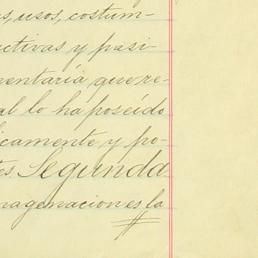 s, usos, costum-
ctivas y pasi
mentaría, que re-
al lo ha poseído
icamente y po-
es. Segunda
nagenaciones la